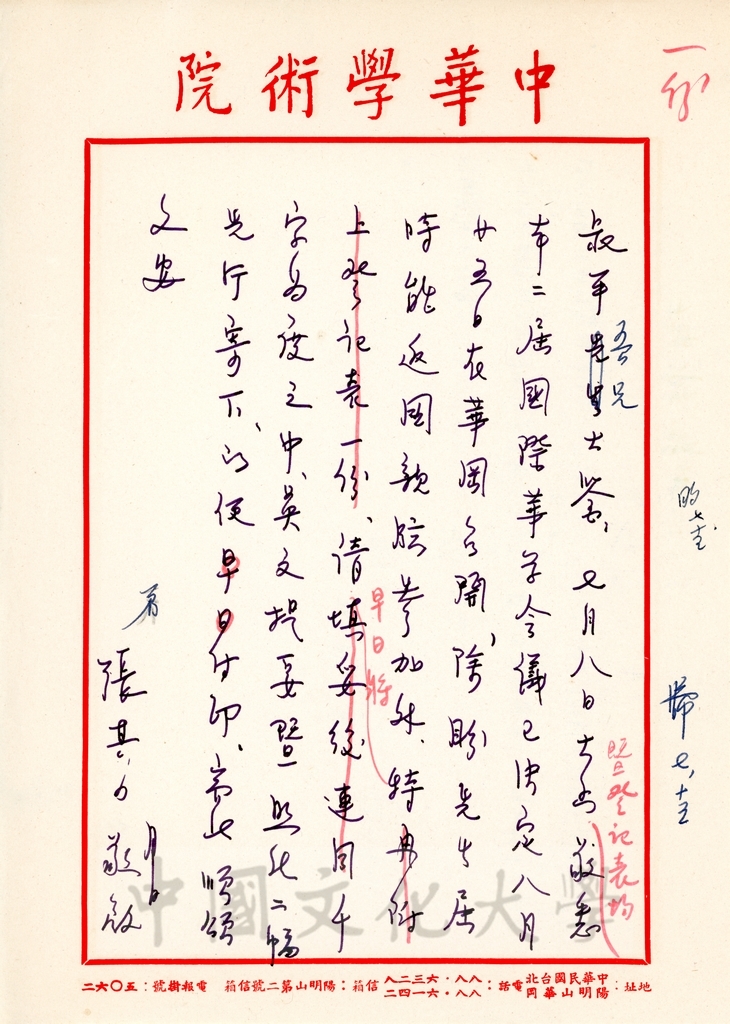 中華學術院
一份
叔平吾兄大鑒、七月八日大函敬悉
暨登記表均
本二屆國際華學會儀已决定八月
廿五日在華岡召開、除盼先生屆
時能返國親臨參加外、特再附
早日將
上登記表一份、請填妥後連同千
字為度之中、英文提要暨照片二幅
先行寄下、以便早日付印、耑此順頌
文安
張其昀敬啟
月 日
中國文化大學
地址：中華民國台北陽明山華岡 電話：八八・六三二八 八八・六一四二 信箱：陽明山第二號信箱 電報掛號：五〇六二